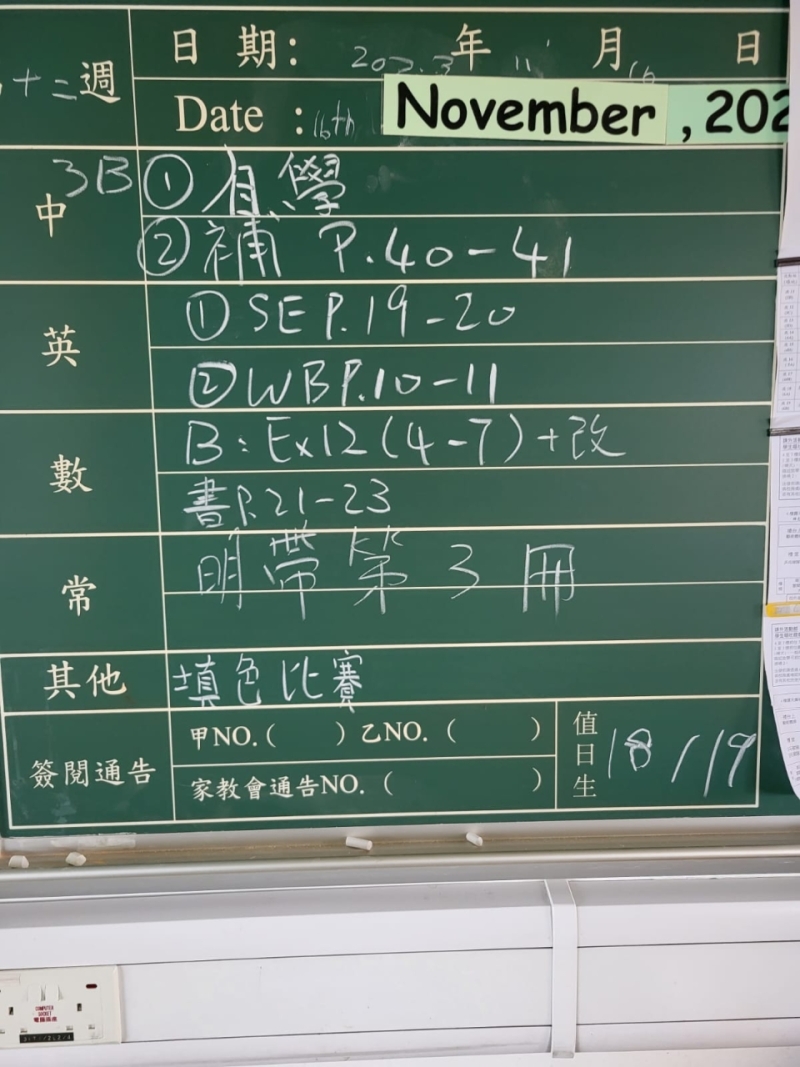 十二週
日 期: 2023 年 11 月 16 日
Date : 16th November , 202
中 3B ① 自學
② 補 P.40-41
英 ① SE P.19-20
② WB P.10-11
數 B: Ex12 (4-7) + 改
書P.21-23
常 明帶第3冊
其他 填色比賽
簽閱通告 甲NO.( ) 乙NO. ( )
家教會通告NO. ( )
值日生 18/19
COMPUTER
SOCKET
電腦插座